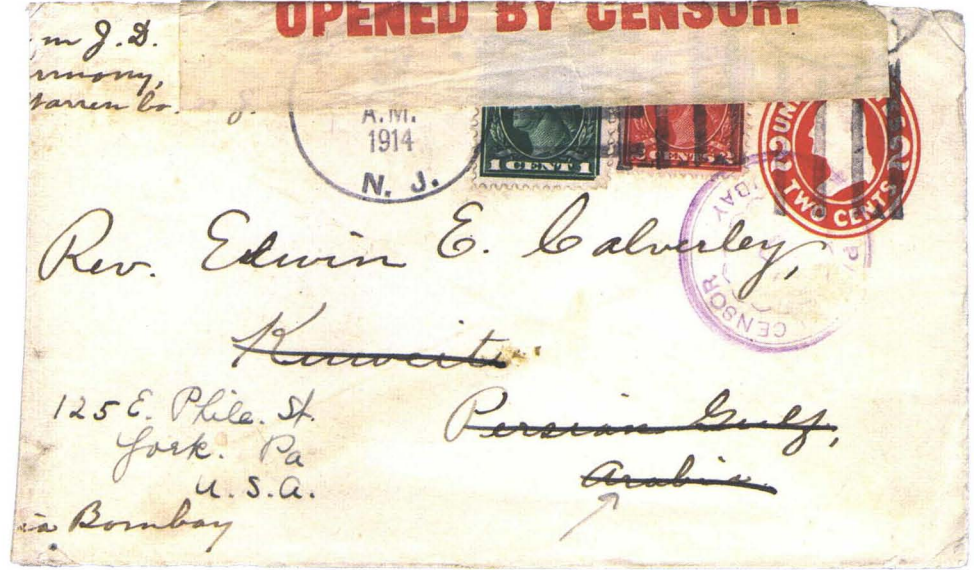 OPENED BY CENSOR.
J. D.
A.M.
1914
N. J.
1 CENT 1
CENTS 2
TWO CENTS
CENSOR
Rev. Edwin E. Calverley,
Kuweit
Persian Gulf,
Arabia
125 E. Phila. St.
York. Pa
U.S.A.
Bombay